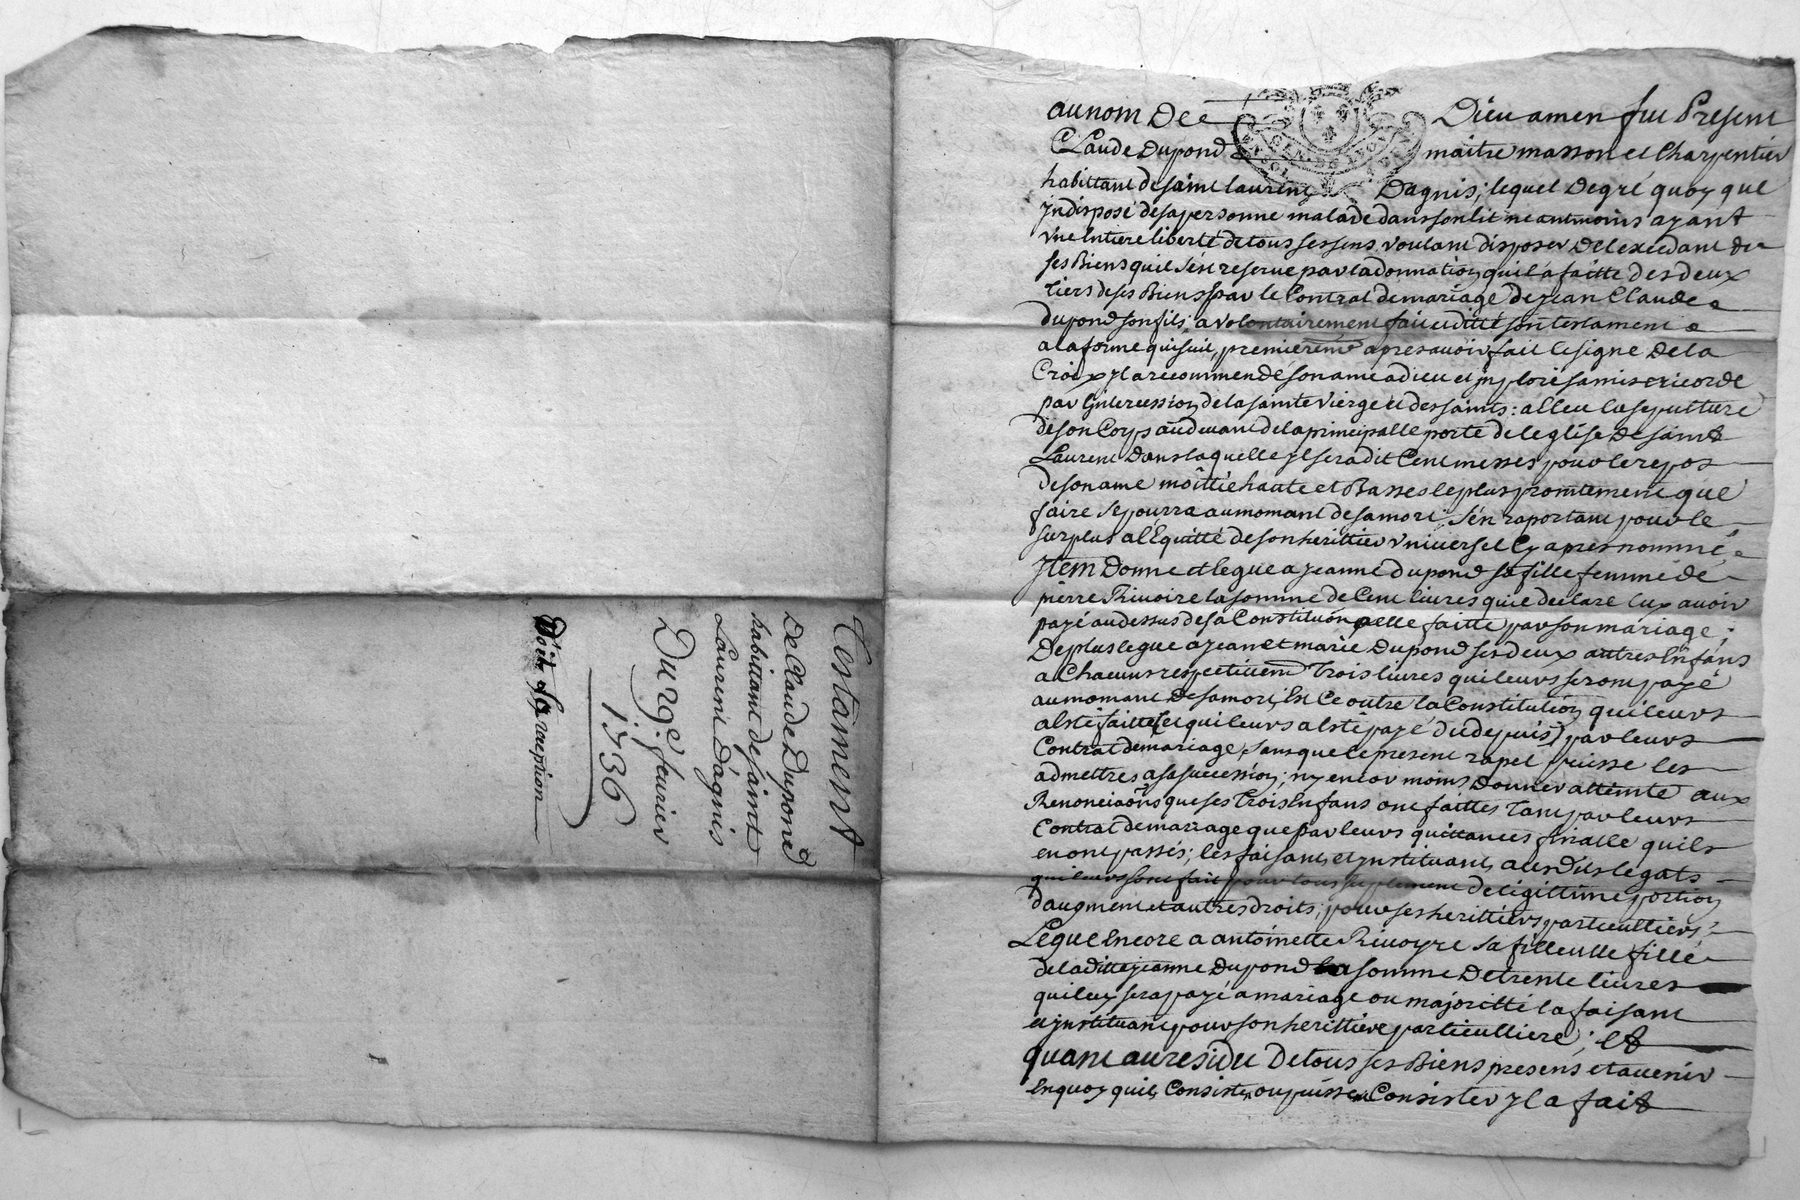 Testament
De Claude Dupond
habittant de saint
Laurent D'agnis
Du 29e. feurier
1736
au nom De Dieu amen fut Present
Claude Dupond maitre masson et Charpentier
habittant de saint laurent Dagnis; lequel De gré quoy que
jndisposé de sa personne malade dans son lit neantmoins ayant
vne Entiere liberté de tous ses sens voulant disposer De lexcedant de
ses Biens quil s'est reservé par la donnation quil a faitte des deux
tiers de ses Biens par le Contrat de mariage de jean Claude
dupond son fils; a volontairement fait et ditté son testament
a la forme qui suit, premierem͞t apres auoir fait le signe De la
Croix jl a recommendé son ame a dieu et jmploré sa misericorde
par Lintercession de la sainte vierge et des saints: alleu la sepulture
de son Corps au deuant de la principalle porte de leglise de saint
Laurent Dans laquelle jl sera dit Cent messes pour le repos
de son ame moittié haute et Basses le plus promtement que
faire se pourra au momant de sa mort; s'en raportant pour le
surplus a l'Equitté de son herittier vniversel Cy apres nommé
Jtem Donne et legue a jeanne dupond sa fille femme de
pierre Riuoire la somme de Cent liures qu'il declare luy auoir
payé au dessus de sa Constitu͞on a elle faitte par son mariage;
De plus legue a jean et marie Dupond ses deux autres Enfans
a Chacuns respectiuem͞t Trois liures qui leurs seront payé
au momant De sa mort, En Ce outre la Constitution qui leurs
a lsté faitte (et qui leurs a lsté payé du depuis) par leurs
Contrat de mariage, sans que le present rapel puisse les
admettres a sa succession; ny encor moins Donner atteinte aux
Renonciao͞ns que ses Trois Enfans ont faittes tant par leurs
Contrat de mariage que par leurs quittances finalle quils
en ont passés; les faisant et jnstituant, aus Dits legats
qui leurs sont fait pour tous suplement de legittime portion
d'augment et autres droits; pour ses herittiers particulliers;
Legue Encore a antoinette Riuoyre sa filleulle fille
de la ditte jeanne Dupond la somme De trente liures
qui luy sera payé a mariage ou majoritté la faisant
et jnstituant pour son herittiere particulliere; Et
quant au residu De tous ses Biens presens et auenir
En quoy quils Consistent ou puissent Consister jl a fait